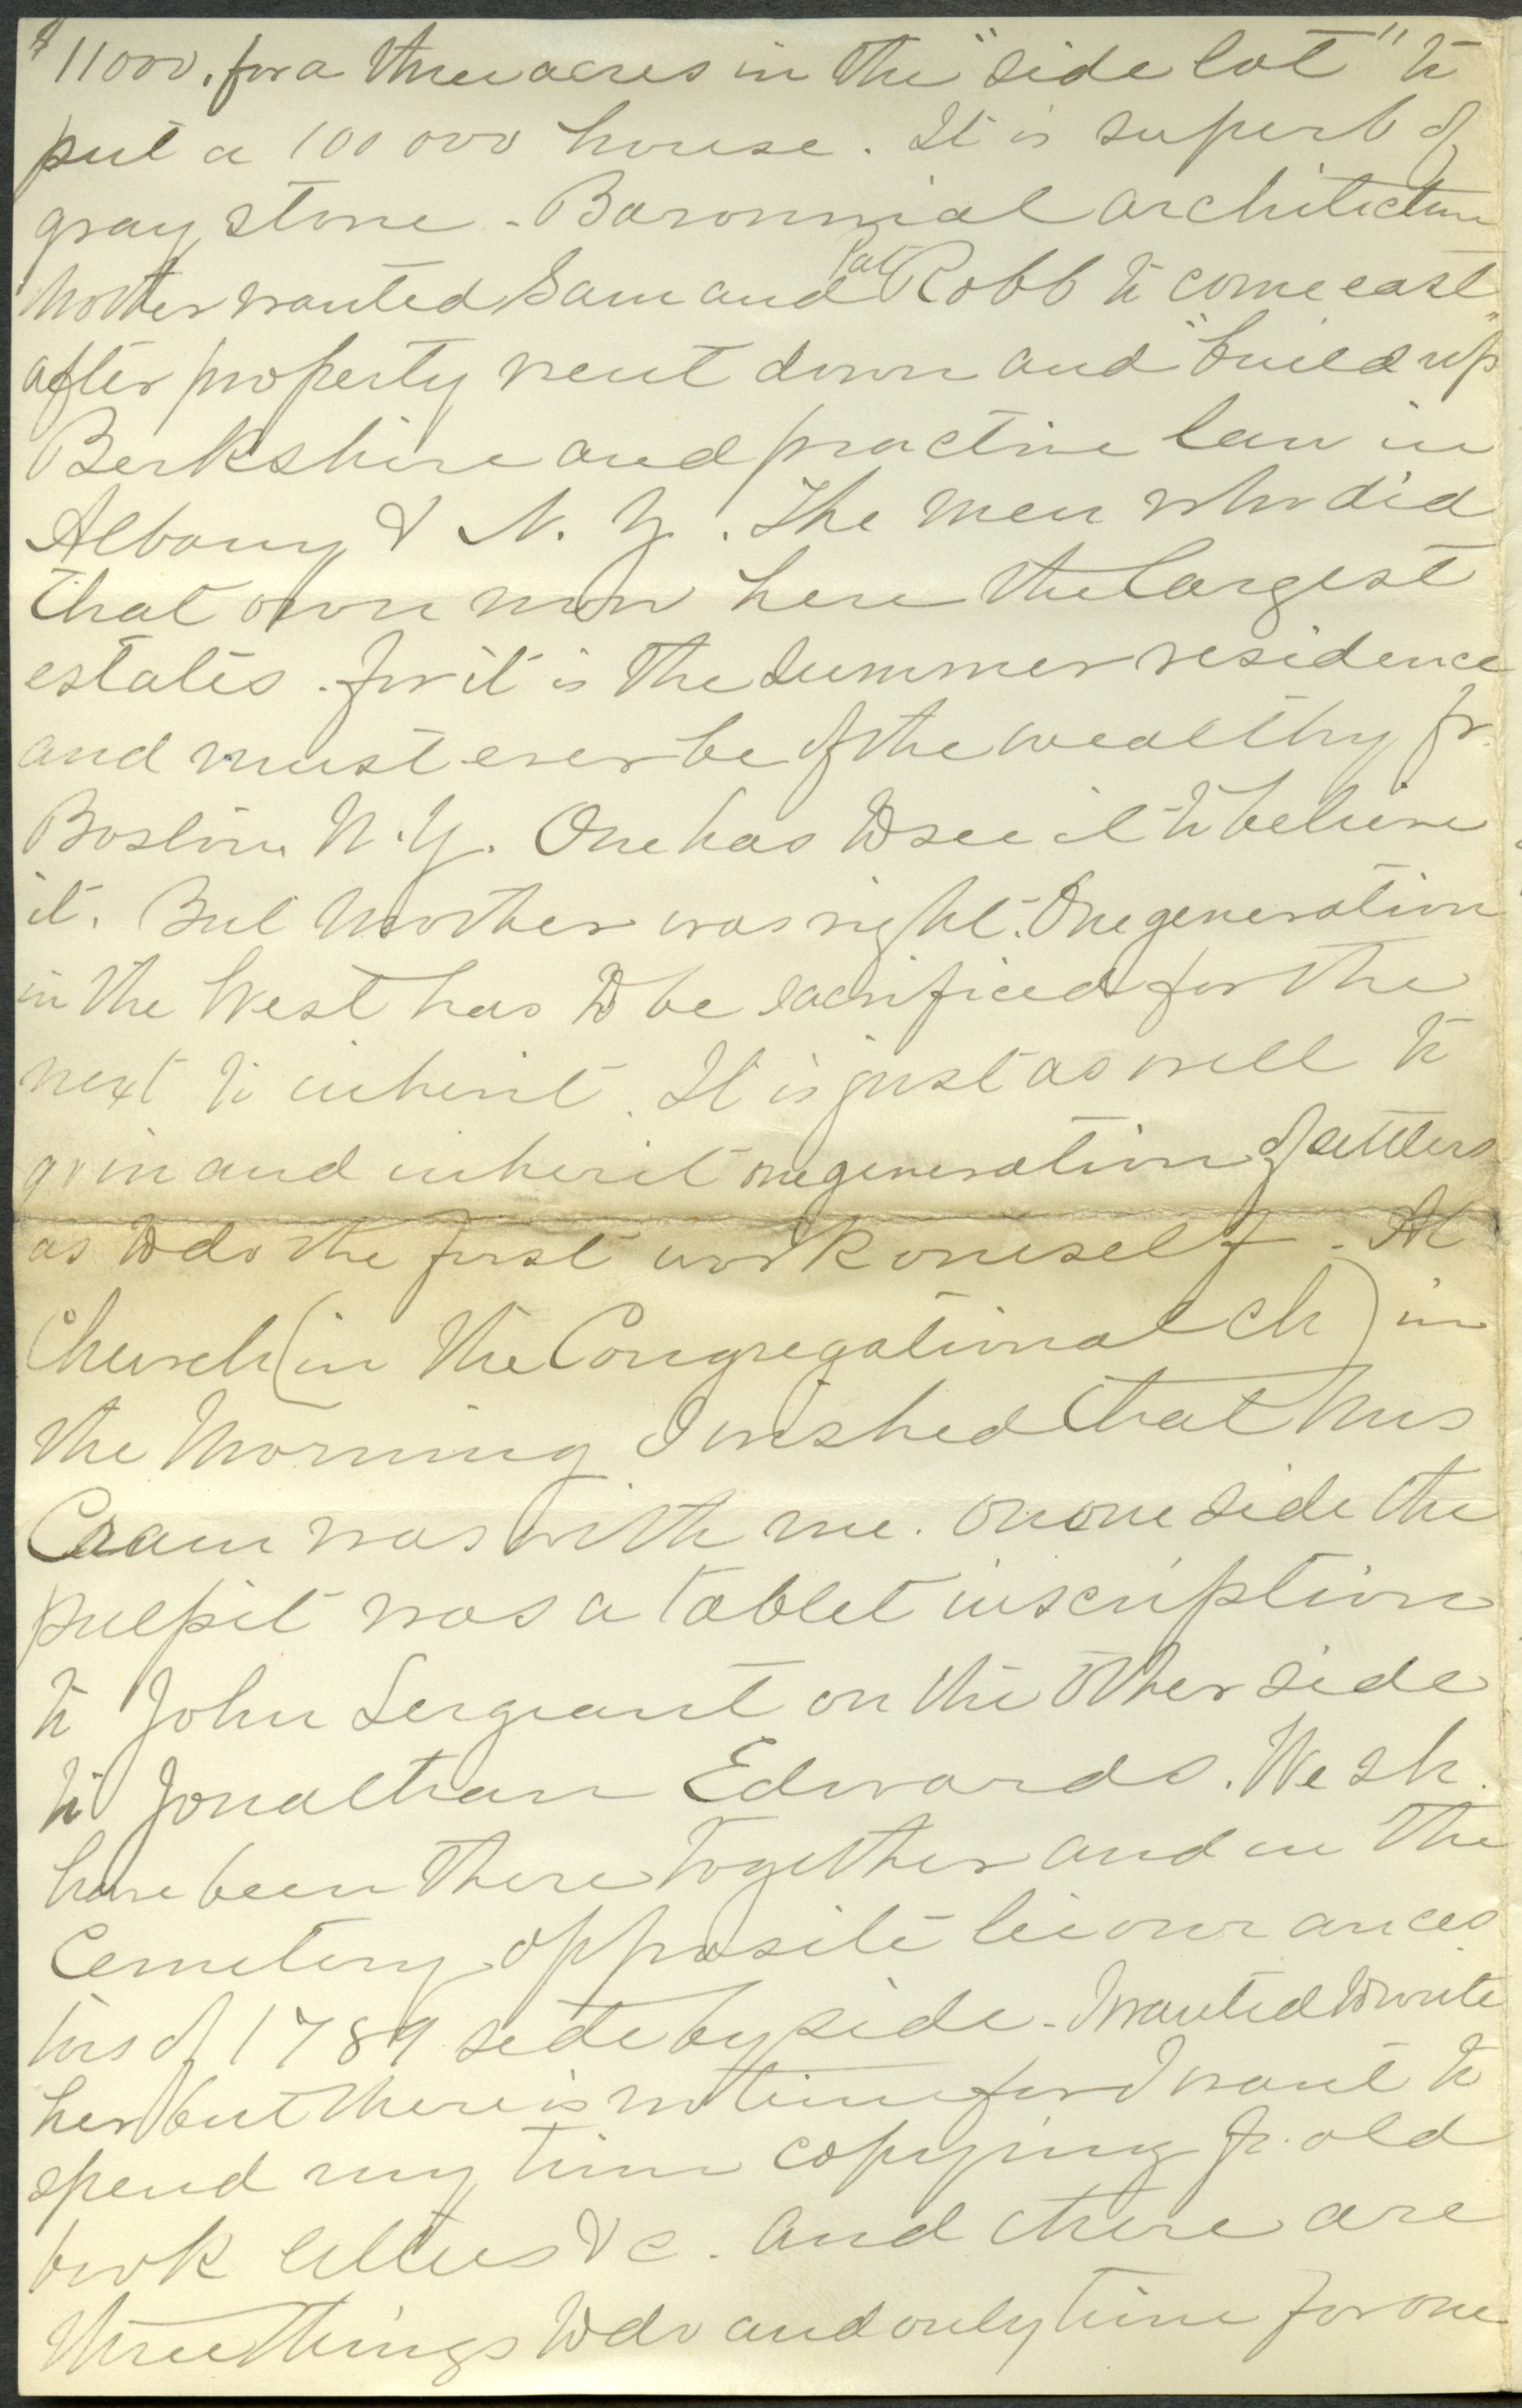 $11000. for a three acres in the "side lot" to
put a 100 000 house. It is superb of
gray stone - Baronnial architecture
Mother wanted Sam and Pat Robb to come east
after property went down and "build up"
Berkshire and practice law in
Albany & N. Y. The men who did
that own now here the largest
estates. for it is the summer residence
and must ever be of the wealthy fr.
Boston N. Y. One has to see it to believe
it. But Mother was right. One generation
in the West has to be sacrificed for the
next to inherit. It is just as well to
go in and inherit one generation of settlers
as to do the first work oneself. At
Church (in the Congregational ch) in
the Morning I wished that Mrs
Cram was with me. on one side the
pulpit was a tablet inscription
to John Sergeant on the other side
to Jonathan Edwards. We sh.
have been there together and in the
Cemetery opposite lie our ances
tors of 1789 side by side - I wanted to write
her but there is no time for I want to
spend my time copying fr. old
book letters &c. and there are
three things to do and only time for one